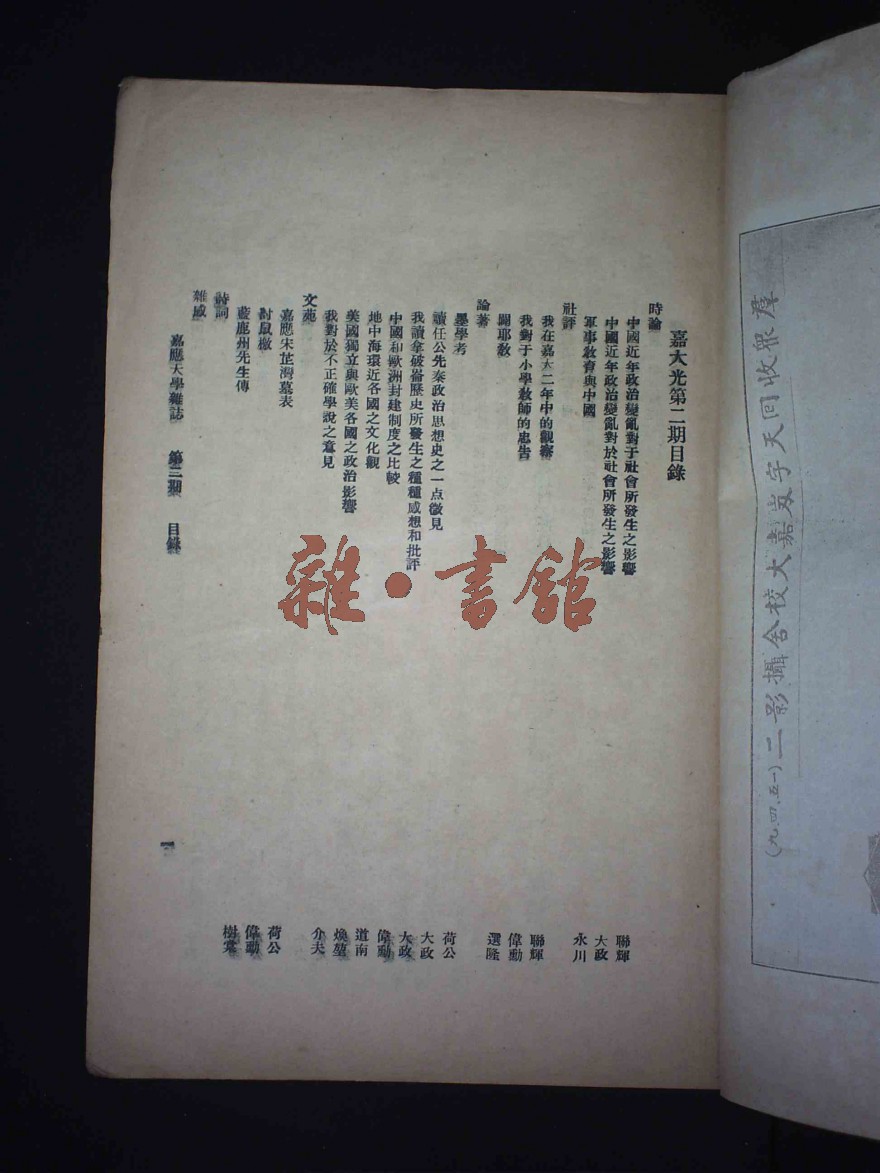 嘉大光第二期目錄
時論
中國近年政治變亂對于社會所發生之影響 聯輝
中國近年政治變亂對於社會所發生之影響 大政
軍事教育與中國 永川
社評
我在嘉大二年中的觀察 聯輝
我對于小學教師的忠告 偉勳
闢耶教 選隆
論著
墨學考 荷公
讀任公先秦政治思想史之一点微見 大政
我讀拿破崙歷史所發生之種種感想和批評 大政
中國和歐洲封建制度之比較 偉勳
地中海環近各國之文化觀 道南
美國獨立與歐美各國之政治影響 煥堃
我對於不正確學說之意見 介夫
文苑
嘉應宋芷灣墓表 荷公
討鼠檄 偉勳
藍鹿州先生傳 樹棠
詩詞
雜感
嘉應大學雜誌 第二期 目錄
一
羣衆收回天字岌嘉大校舍攝影二(一五、四、九)
雜·書舘